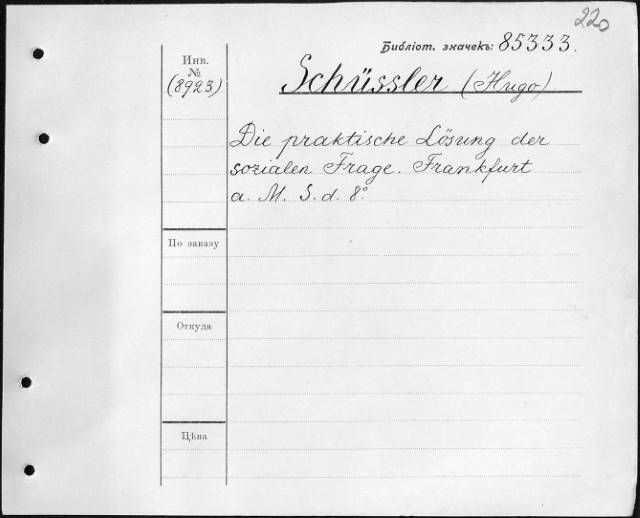 220
Библіот. значекъ: 85333.
Инв.
№
(8923)
Schüssler (Hugo)
Die praktische Lösung der
sozialen Frage. Frankfurt
a. M. S. d. 8º
По заказу
Откуда
Цѣна